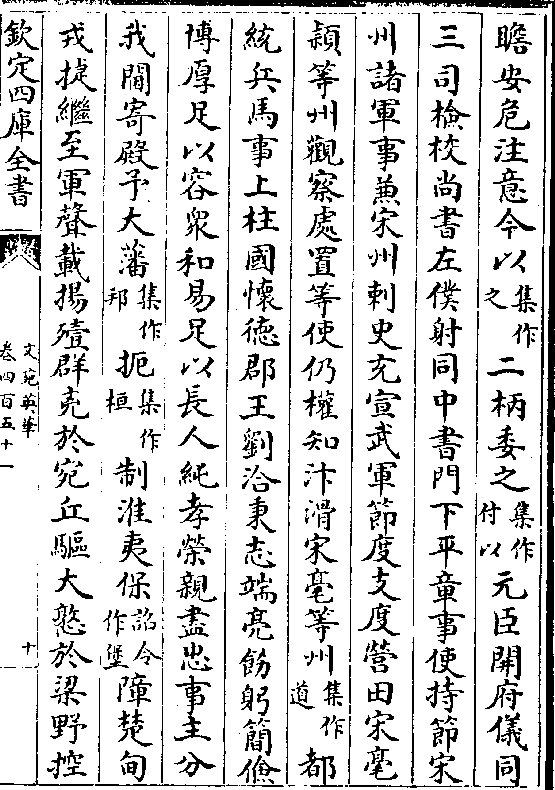 瞻安危注意今以集作之二柄委之集作付以元臣開府儀同
三司檢校尚書左僕射同中書門下平章事使持節宋
州諸軍事兼宋州刺史充宣武軍節度支度營田宋亳
潁等州觀察處置等使仍權知汴滑宋亳等州集作道都
統兵馬事上柱國懷德郡王劉洽秉志端亮飭躬簡儉
博厚足以容衆和易足以長人純孝榮親盡忠事主分
我閫寄殿予大藩集作邦扼集作桓制淮夷保詔令作堡障楚甸
戎捷繼至軍聲載揚殪群兇於宛丘驅大憝於梁野控
欽定四庫全書
文苑英華
卷四百五十一
十